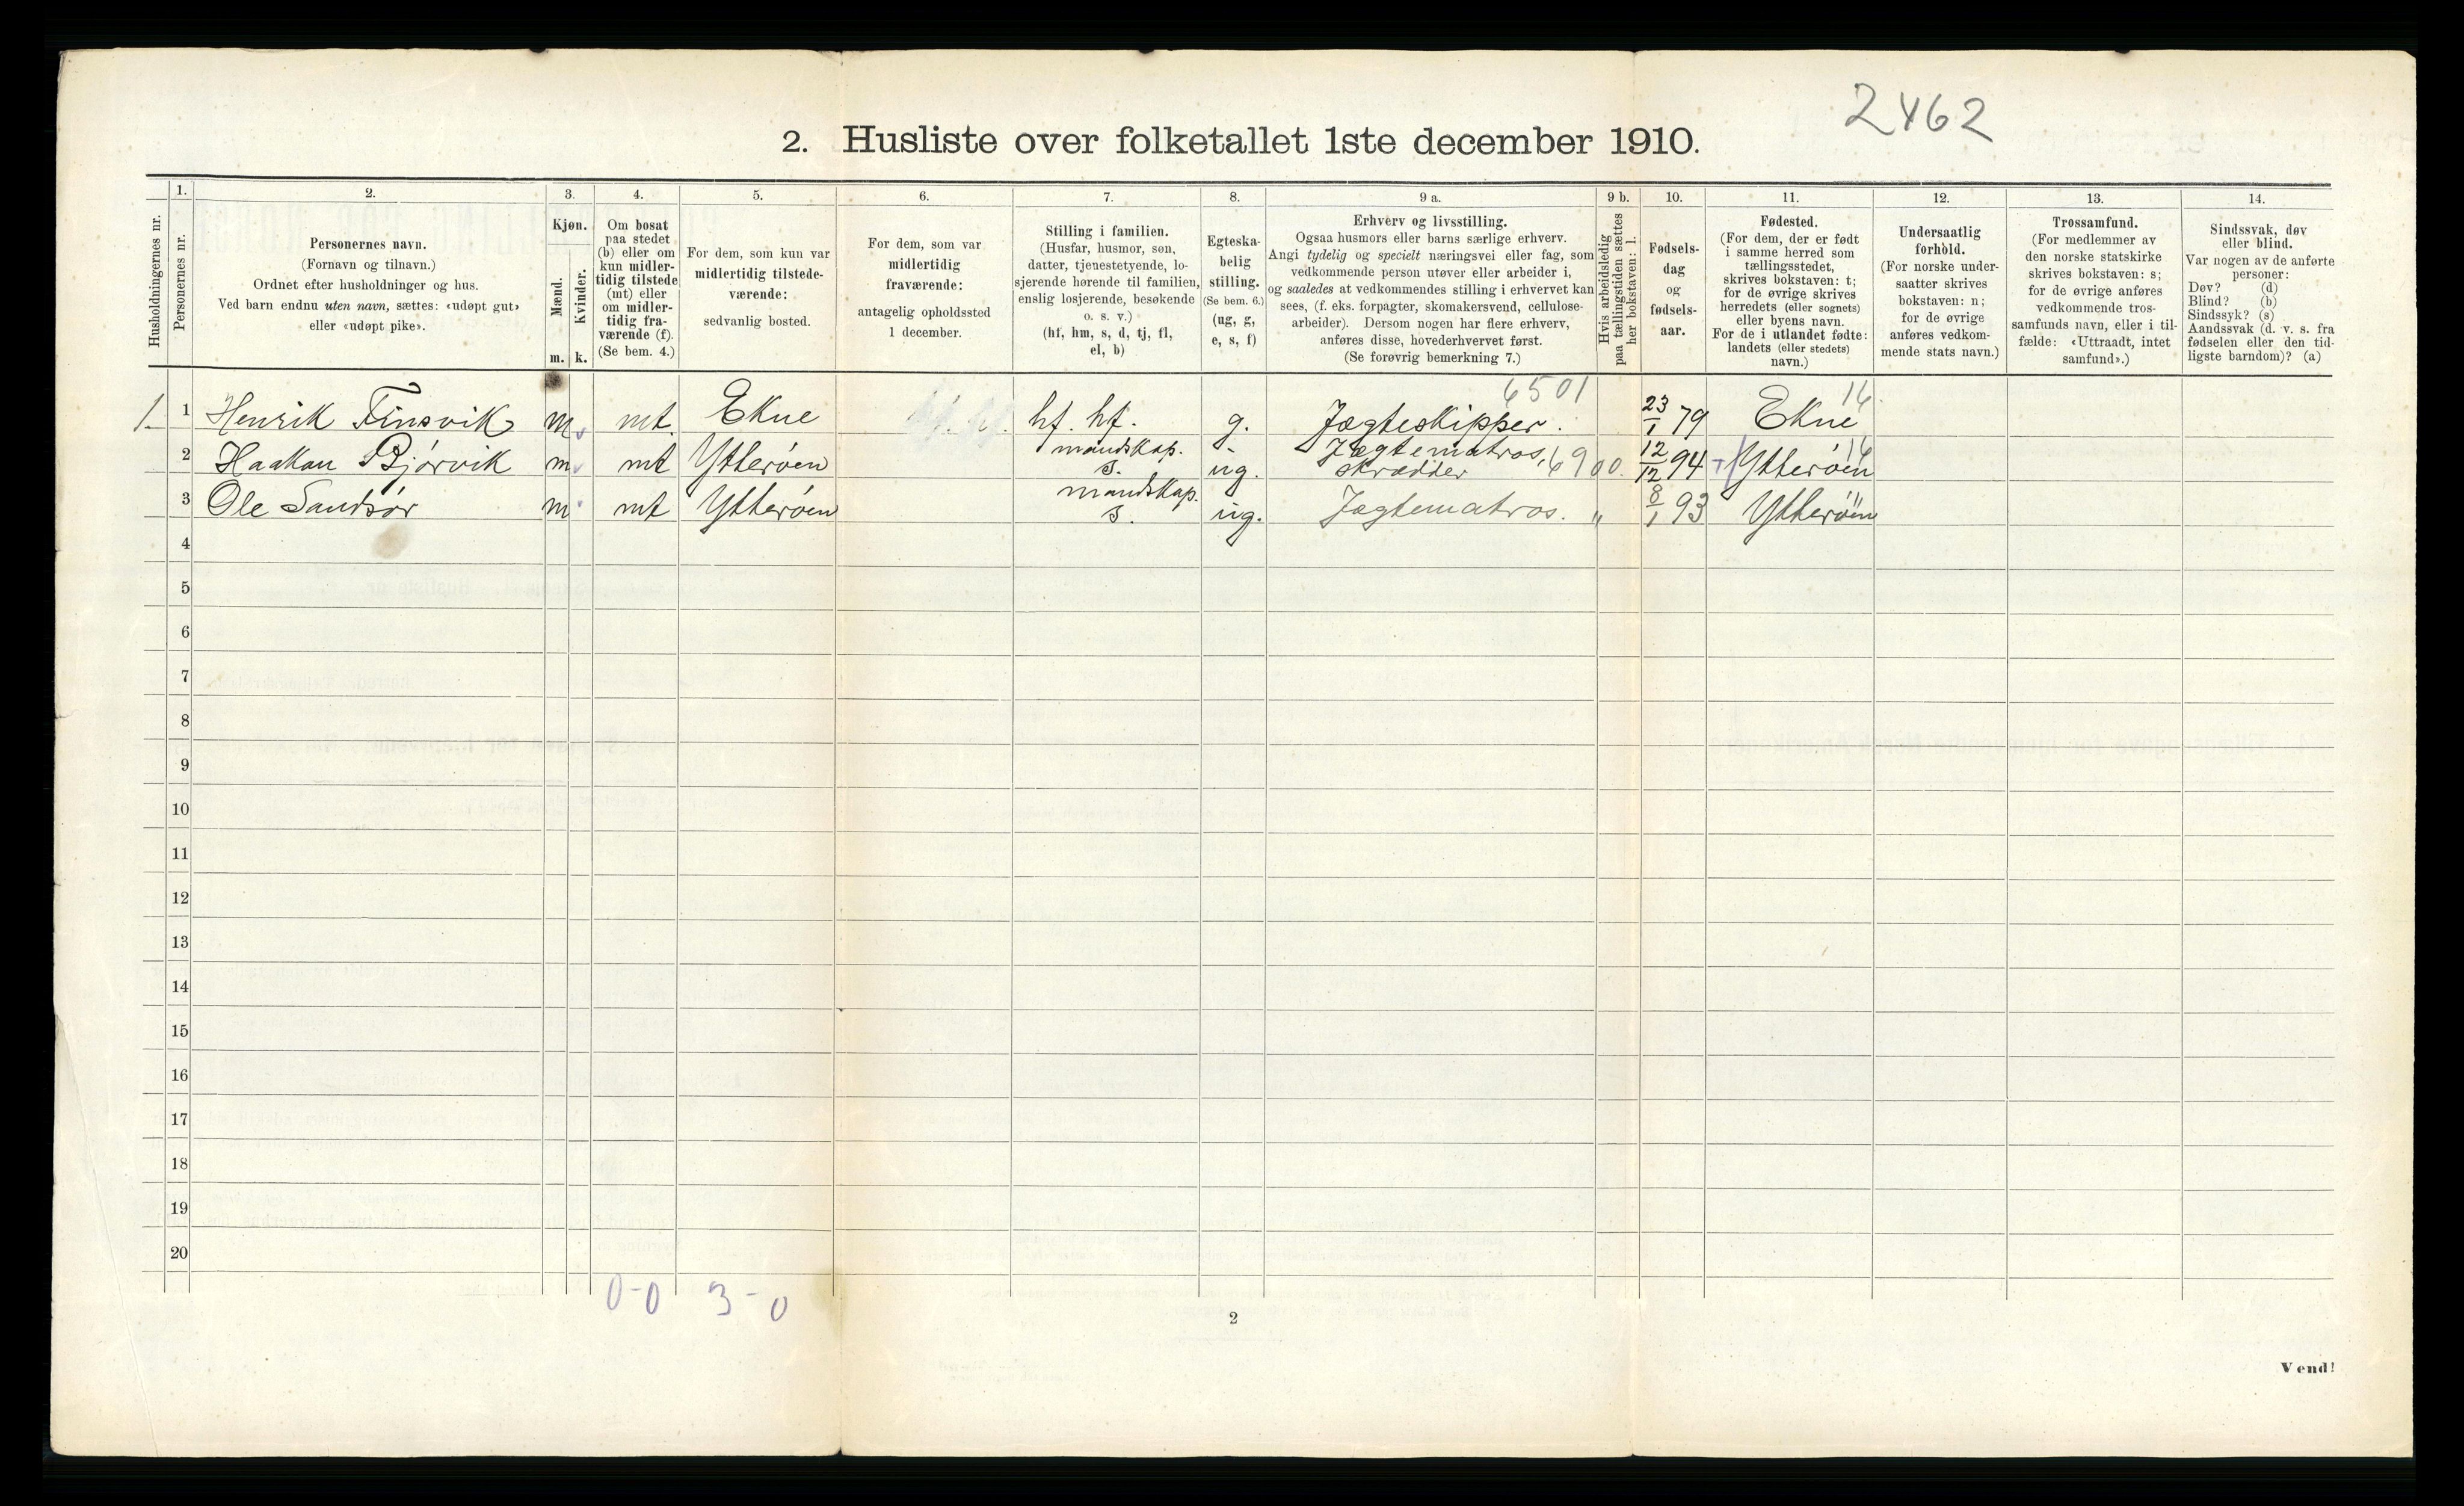 2462
2. Husliste over folketallet 1ste december 1910.
Husholdningernes nr.
1.
Personernes nr.
2.
Personernes navn.
(Fornavn og tilnavn.)
Ordnet efter husholdninger og hus.
Ved barn endnu uten navn, sættes: «udøpt gut»
eller «udøpt pike».
3.
Kjøn.
Mænd.
Kvinder.
m. k.
4.
Om bosat
paa stedet
(b) eller om
kun midler-
tidig tilstede
(mt) eller
om midler-
tidig fra-
værende (f).
(Se bem. 4.)
5.
For dem, som kun var
midlertidig tilstede-
værende:
sedvanlig bosted.
6.
For dem, som var
midlertidig
fraværende:
antagelig opholdssted
1 december.
7.
Stilling i familien.
(Husfar, husmor, søn,
datter, tjenestetyende, lo-
sjerende hørende til familien,
enslig losjerende, besøkende
o. s. v.)
(hf, hm, s, d, tj, fl,
el, b)
8.
Egteska-
belig
stilling.
(Se bem. 6.)
(ug, g,
e, s, f)
9 a.
Erhverv og livsstilling.
Ogsaa husmors eller barns særlige erhverv.
Angi tydelig og specielt næringsvei eller fag, som
vedkommende person utøver eller arbeider i,
og saaledes at vedkommendes stilling i erhvervet kan
sees, (f. eks. forpagter, skomakersvend, cellulose-
arbeider). Dersom nogen har flere erhverv,
anføres disse, hovederhvervet først.
(Se forøvrig bemerkning 7.)
9 b.
Hvis arbeidsledig
paa tællingstiden sættes
her bokstaven: l.
10.
Fødsels-
dag
og
fødsels-
aar.
11.
Fødested.
(For dem, der er født
i samme herred som
tællingsstedet,
skrives bokstaven: t;
for de øvrige skrives
herredets (eller sognets)
eller byens navn.
For de i utlandet fødte:
landets (eller stedets)
navn.)
12.
Undersaatlig
forhold.
(For norske under-
saatter skrives
bokstaven: n;
for de øvrige
anføres vedkom-
mende stats navn.)
13.
Trossamfund.
(For medlemmer av
den norske statskirke
skrives bokstaven: s;
for de øvrige anføres
vedkommende tros-
samfunds navn, eller i til-
fælde: «Uttraadt, intet
samfund».)
14.
Sindssvak, døv
eller blind.
Var nogen av de anførte
personer:
Døv? (d)
Blind? (b)
Sindssyk? (s)
Aandssvak (d. v. s. fra
fødselen eller den tid-
ligste barndom)? (a)
6501 16.
1. 1 Henrik Finsvik m mt. Ekne hf. hf. g. Jægteskipper. 23/1 79 Ekne
mandskap. Jægtematros, 16
2 Haakon Bjørvik m mt Ytterøen s. ug. skrædder 6900. 12/12 94 Ytterøen
mandskap. "
3 Ole Sandsør m mt Ytterøen s. ug. Jægtematros. " 8/1 93 Ytterøen
4
5
6
7
8
9
10
11
12
13
14
15
16
17
18
19
20
0-0 3-0
2
Vend!